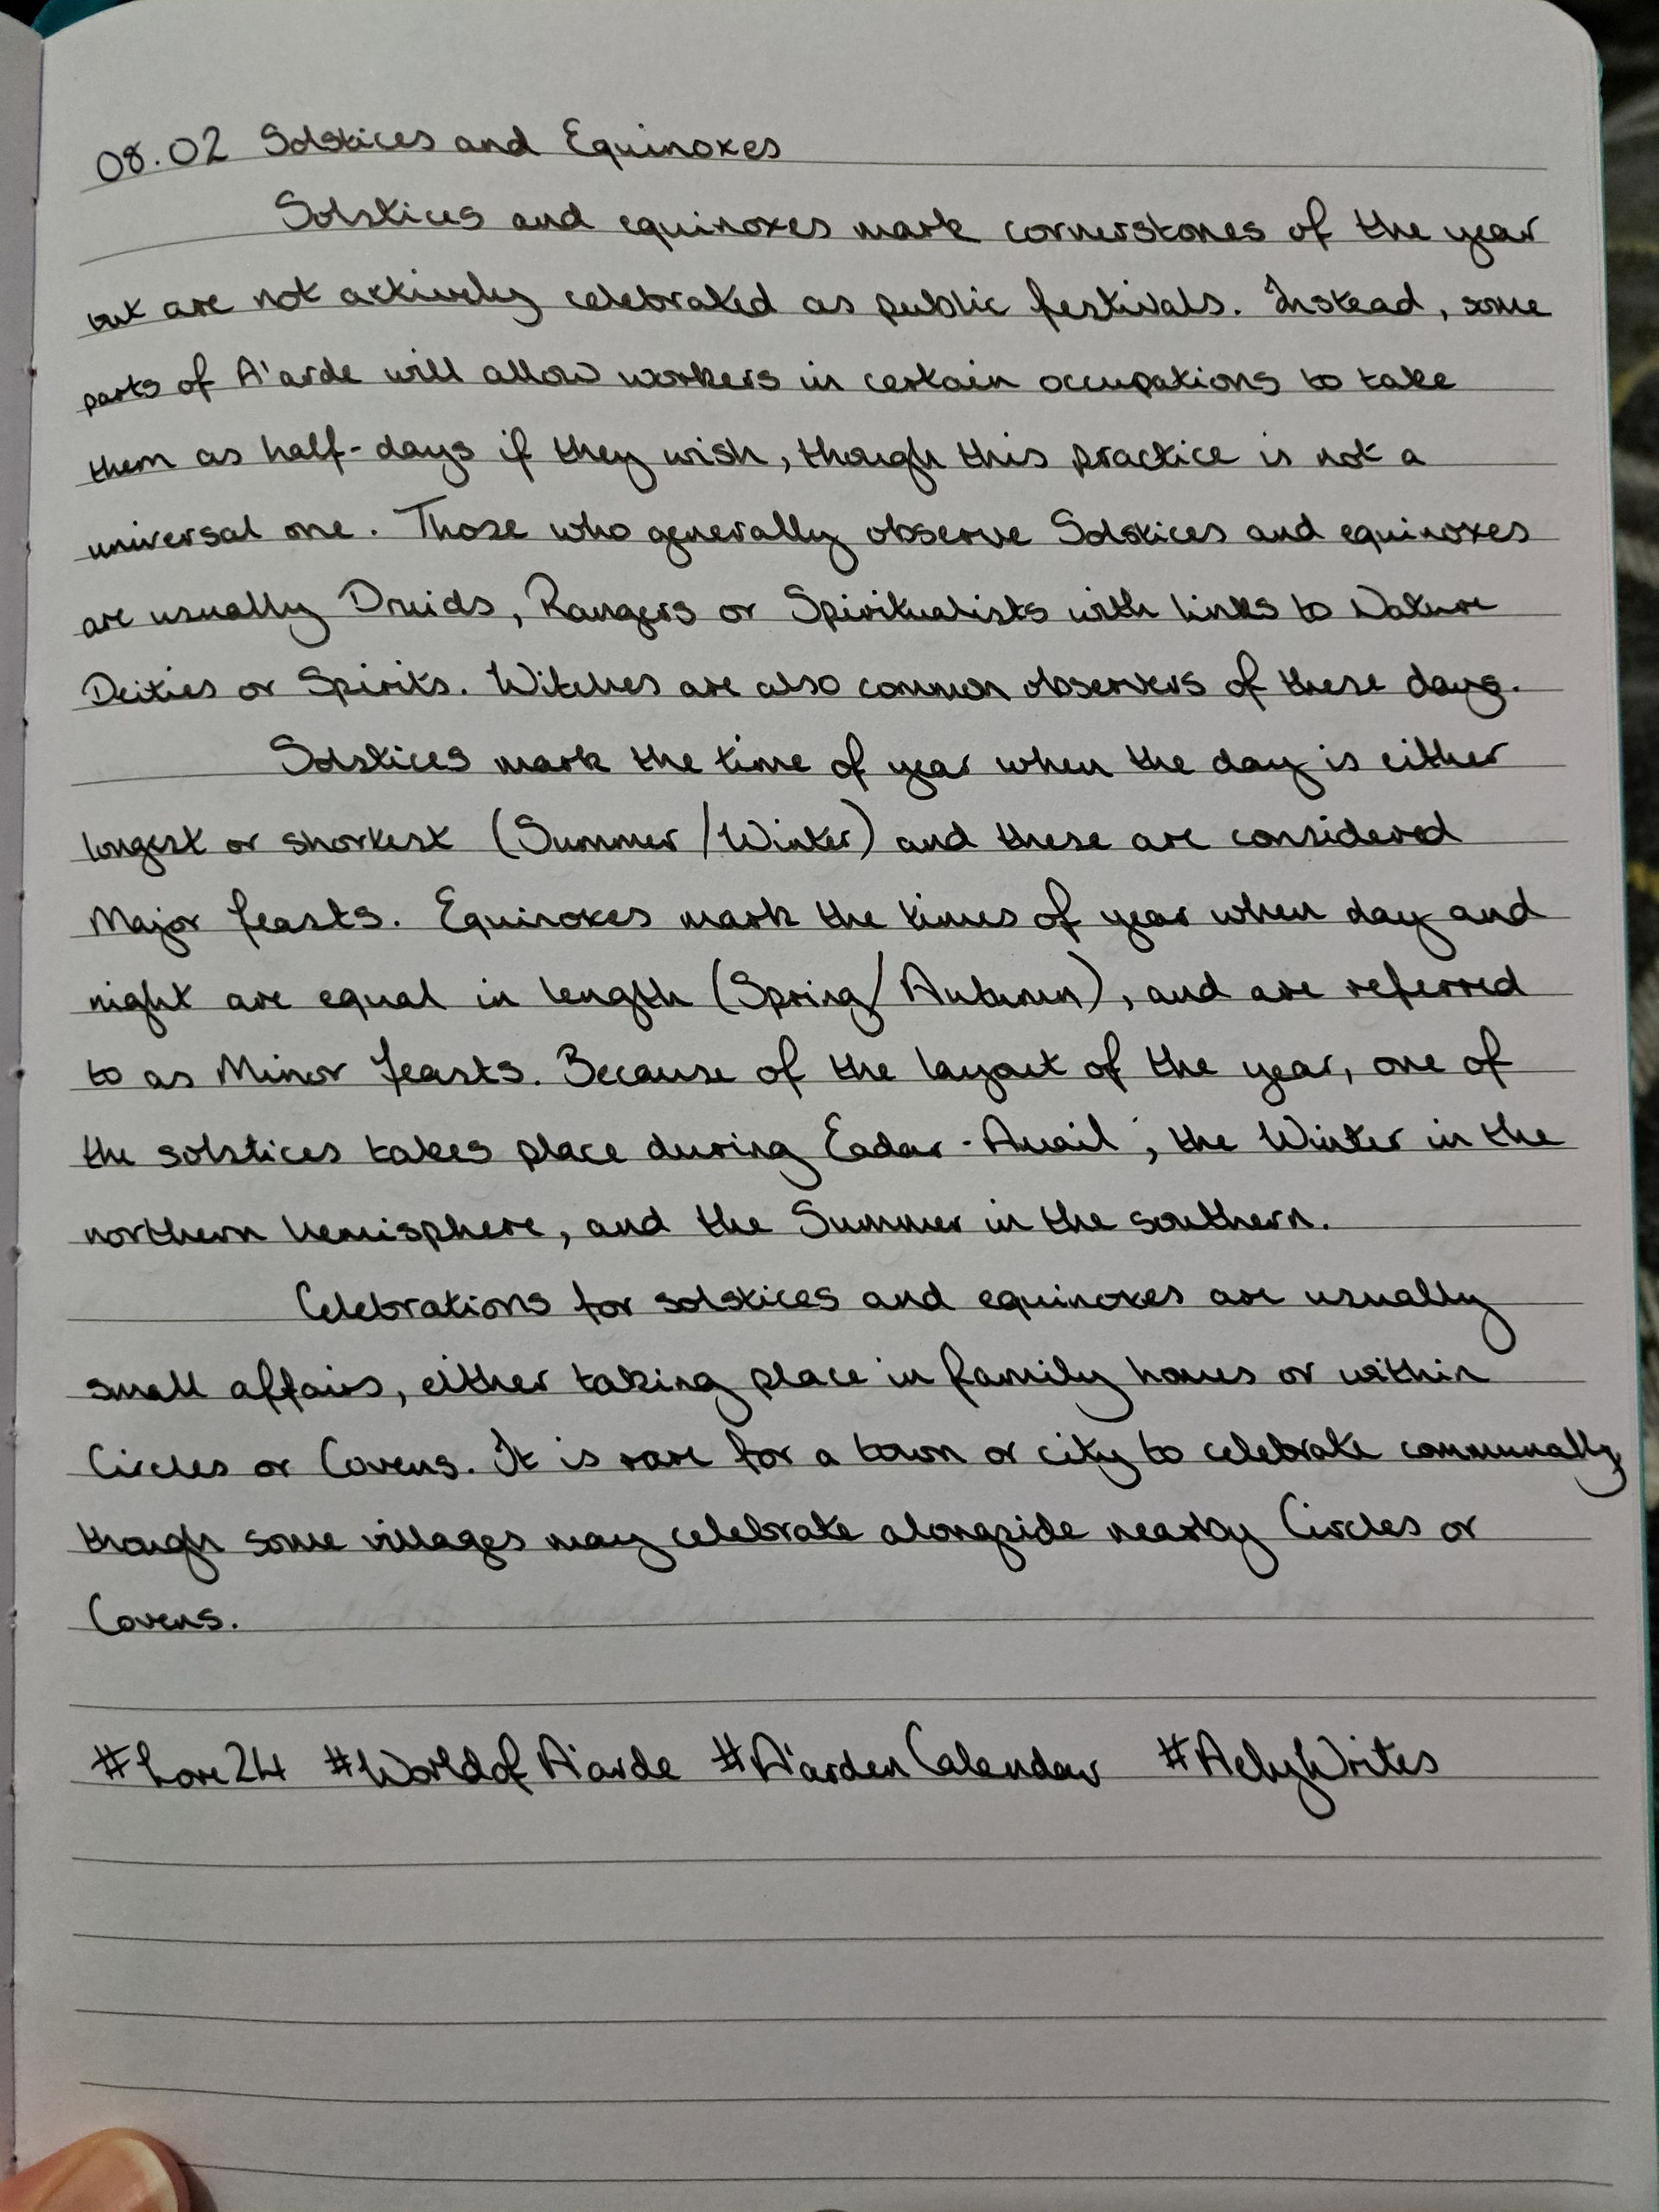 08.02 Solstices and Equinoxes
Solstices and equinoxes mark cornerstones of the year
but are not actively celebrated as public festivals. Instead, some
parts of A'arde will allow workers in certain occupations to take
them as half-days if they wish, though this practice is not a
universal one. Those who generally observe Solstices and equinoxes
are usually Druids, Rangers or Spiritualists with links to Nature
Deities or Spirits. Witches are also common observers of these days.
Solstices mark the time of year when the day is either
longest or shortest (Summer/Winter) and these are considered
Major feasts. Equinoxes mark the times of year when day and
night are equal in length (Spring/Autumn), and are referred
to as Minor feasts. Because of the layout of the year, one of
the solstices takes place during Eadar-Ama̶il; the Winter in the
northern hemisphere, and the Summer in the southern.
Celebrations for solstices and equinoxes are usually
small affairs, either taking place in family homes or within
Circles or Covens. It is rare for a town or city to celebrate communally,
though some villages may celebrate alongside nearby Circles or
Covens.
#Lore24 #WorldofA'arde #A'ardenCalendar #AelyWrites